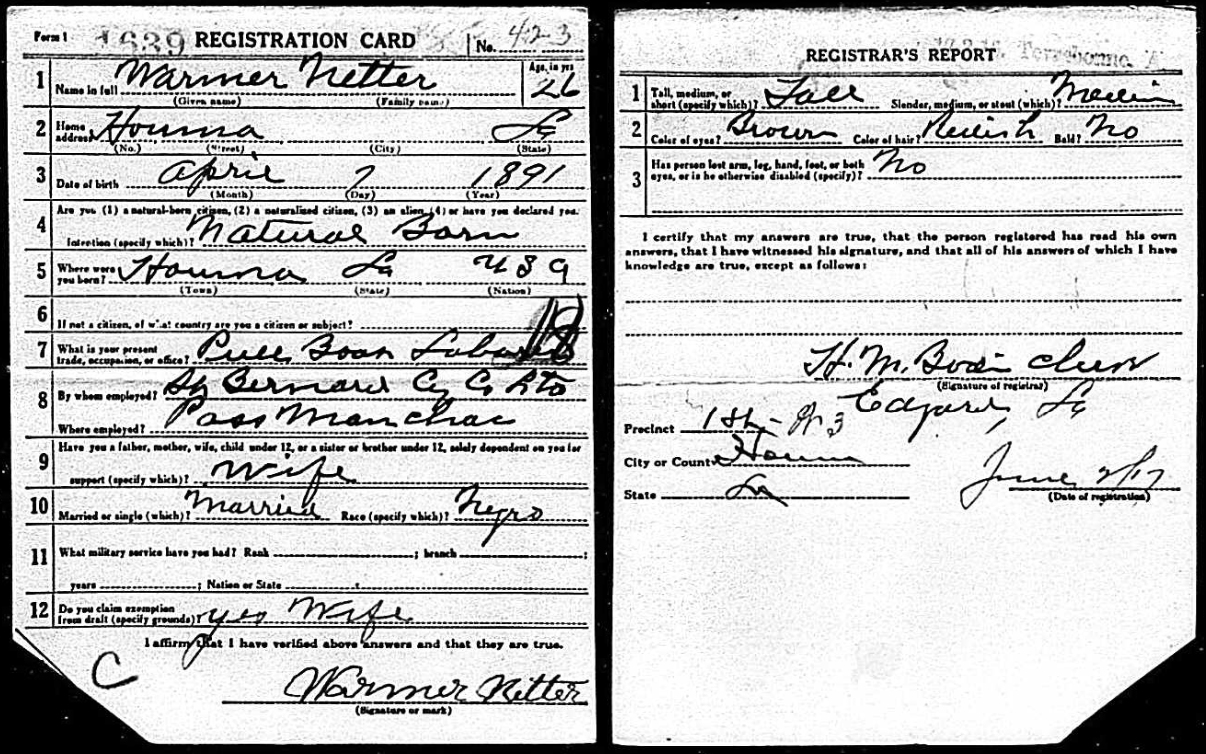 Form 1 1639 REGISTRATION CARD No. 423
1 Name in full Warmer Netter Age, in yrs 26
(Given name) (Family name)
2 Home address Houma La
(No.) (Street) (City) (State)
3 Date of birth April 7 1891
(Month) (Day) (Year)
4 Are you (1) a natural-born citizen, (2) a naturalized citizen, (3) an alien, (4) or have you declared your
intention (specify which)? Natural Born
5 Where were you born? Houma La USA
(Town) (State) (Nation)
6 If not a citizen, of what country are you a citizen or subject?
7 What is your present trade, occupation, or office? Pull Boat 18
8 By whom employed? Bernard Cy Co Ltd
Where employed? Pass Manchac
9 Have you a father, mother, wife, child under 12, or a sister or brother under 12, solely dependent on you for
support (specify which)? Wife
10 Married or single (which)? Married Race (specify which)? Negro
11 What military service have you had? Rank ; branch ;
years ; Nation or State
12 Do you claim exemption from draft (specify grounds)? yes Wife
I affirm that I have verified above answers and that they are true.
C
Warmer Netter
(Signature or mark)
REGISTRAR'S REPORT
1 Tall, medium, or short (specify which)? Tall Slender, medium, or stout (which)?
2 Color of eyes? Brown Color of hair? Bald? No
3 Has person lost arm, leg, hand, foot, or both
eyes, or is he otherwise disabled (specify)? No
I certify that my answers are true, that the person registered has read his own
answers, that I have witnessed his signature, and that all of his answers of which I have
knowledge are true, except as follows:
H. M.
(Signature of registrar)
Edgard, La
Precinct 1st W 3
City or County Houma
State La
June 2/17
(Date of registration)